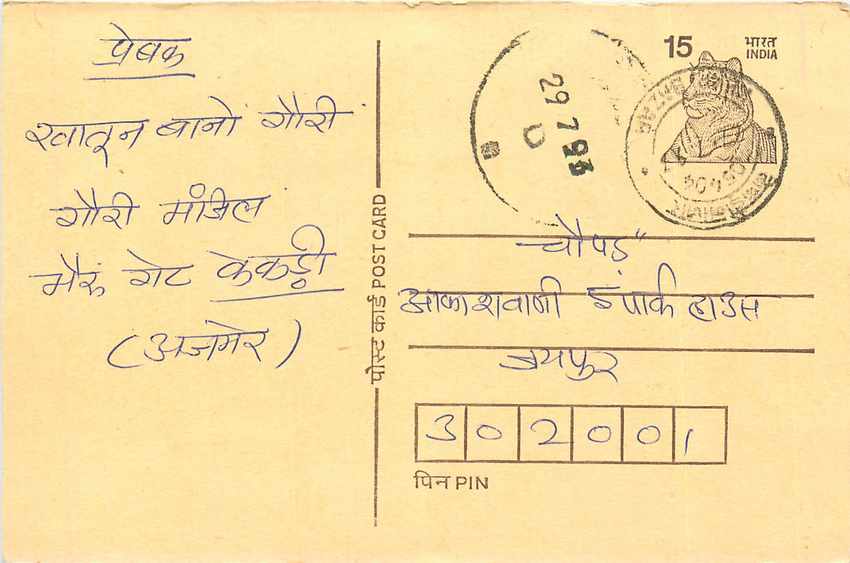 प्रेषक
खातून बानो गौरी
गौरी मंजिल
भैरू गेट केकड़ी
(अजमेर)
पोस्ट कार्ड POST CARD
15
भारत
INDIA
29 7 93
D
चौपड़"
आकाशवाणी 5 पार्क हाउस
जयपुर
302001
पिन PIN